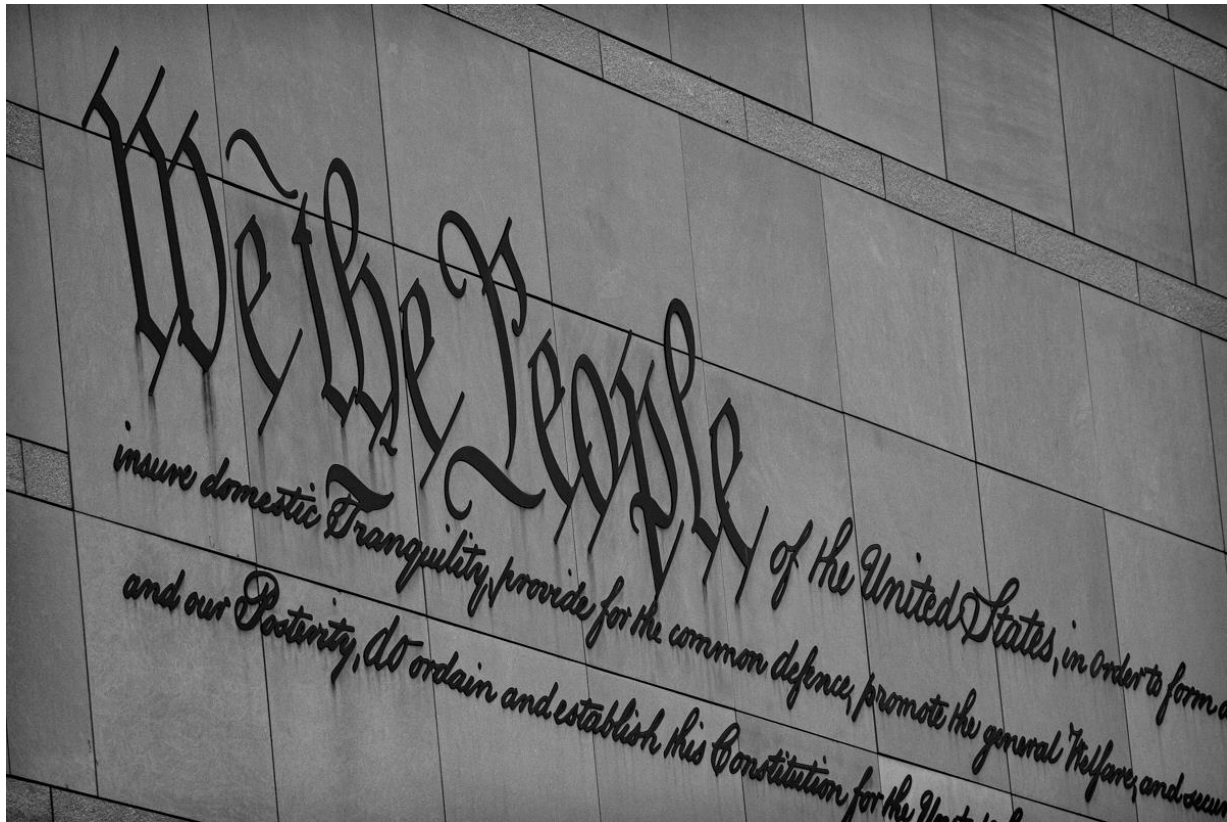 We the People of the United States, in order to form a
insure domestic Tranquility, provide for the common defence, promote the general Welfare, and secur
and our Posterity, do ordain and establish this Constitution for the